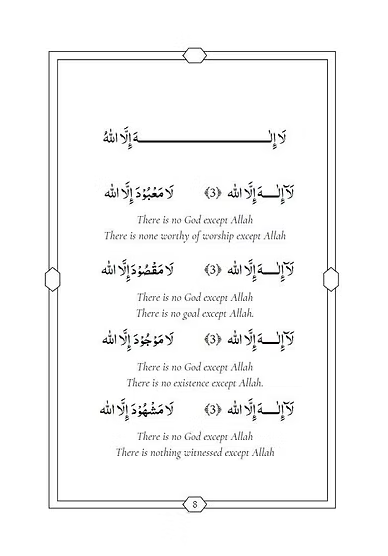 لَا إِلٰـــــــــــــــــهَ إِلَّا اللهُ
لَآ إِلٰــهَ إِلَّا الله ﴿3﴾ لَا مَعْبُوْدَ إِلَّا الله
There is no God except Allah
There is none worthy of worship except Allah
لَآ إِلٰــهَ إِلَّا الله ﴿3﴾ لَا مَقْصُوْدَ إِلَّا الله
There is no God except Allah
There is no goal except Allah.
لَآ إِلٰــهَ إِلَّا الله ﴿3﴾ لَا مَوْجُوْدَ إِلَّا الله
There is no God except Allah
There is no existence except Allah.
لَآ إِلٰــهَ إِلَّا الله ﴿3﴾ لَا مَشْهُوْدَ إِلَّا الله
There is no God except Allah
There is nothing witnessed except Allah
8